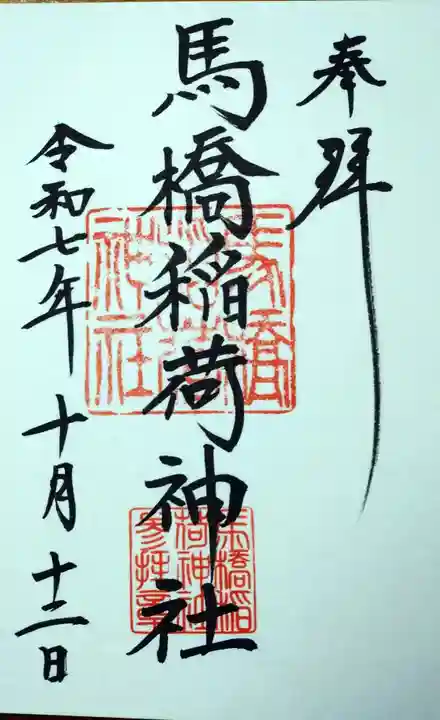 奉拝
馬橋稲荷神社
令和七年 十月 十二日
馬橋稲荷神社
馬橋稲荷神社参拝章